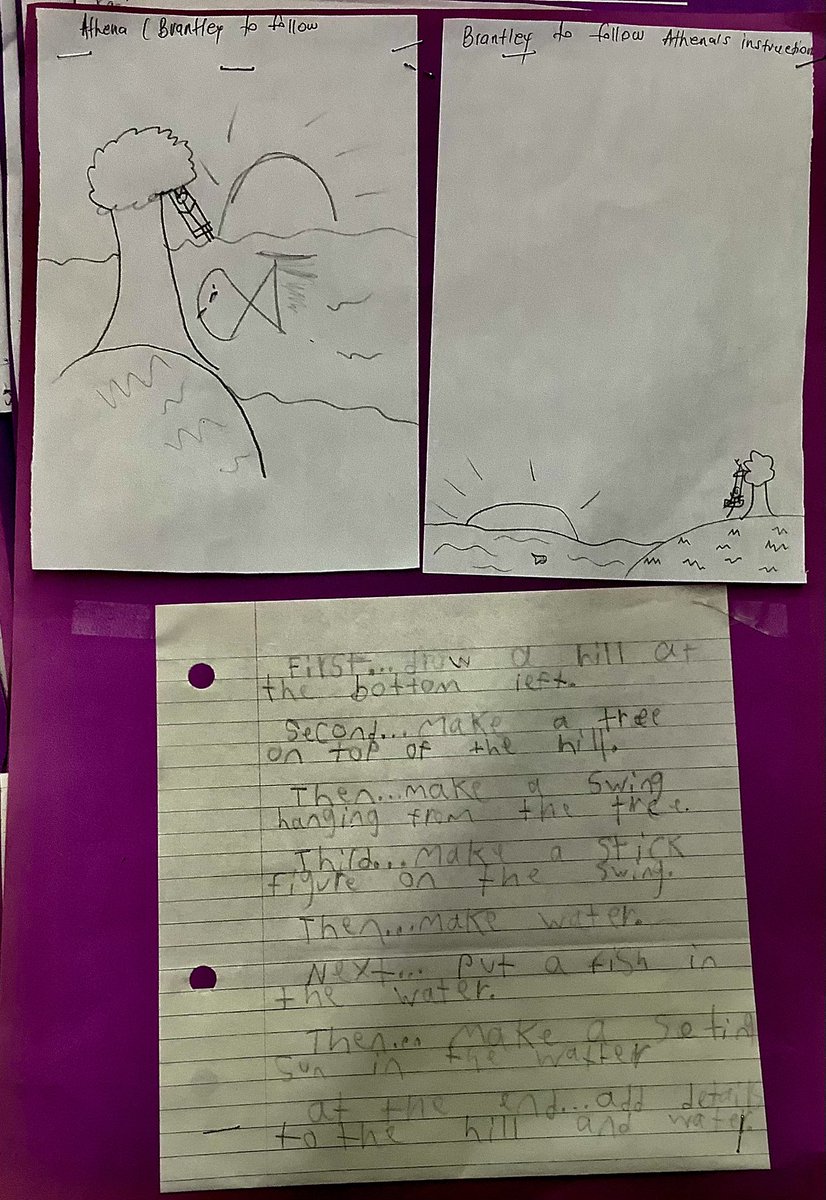 Athena ( Brantley to follow
Brantley to follow Athena's instruction
First... draw a hill at
the bottom left.
Second... Make a tree
on top of the hill.
Then...make a swing
hanging from the tree.
Thild...Make a stick
figure on the swing.
Then...make water.
Next... put a fish in
the water.
Then... make a setind
sun in the watter
at the end...add details
to the hill and water.